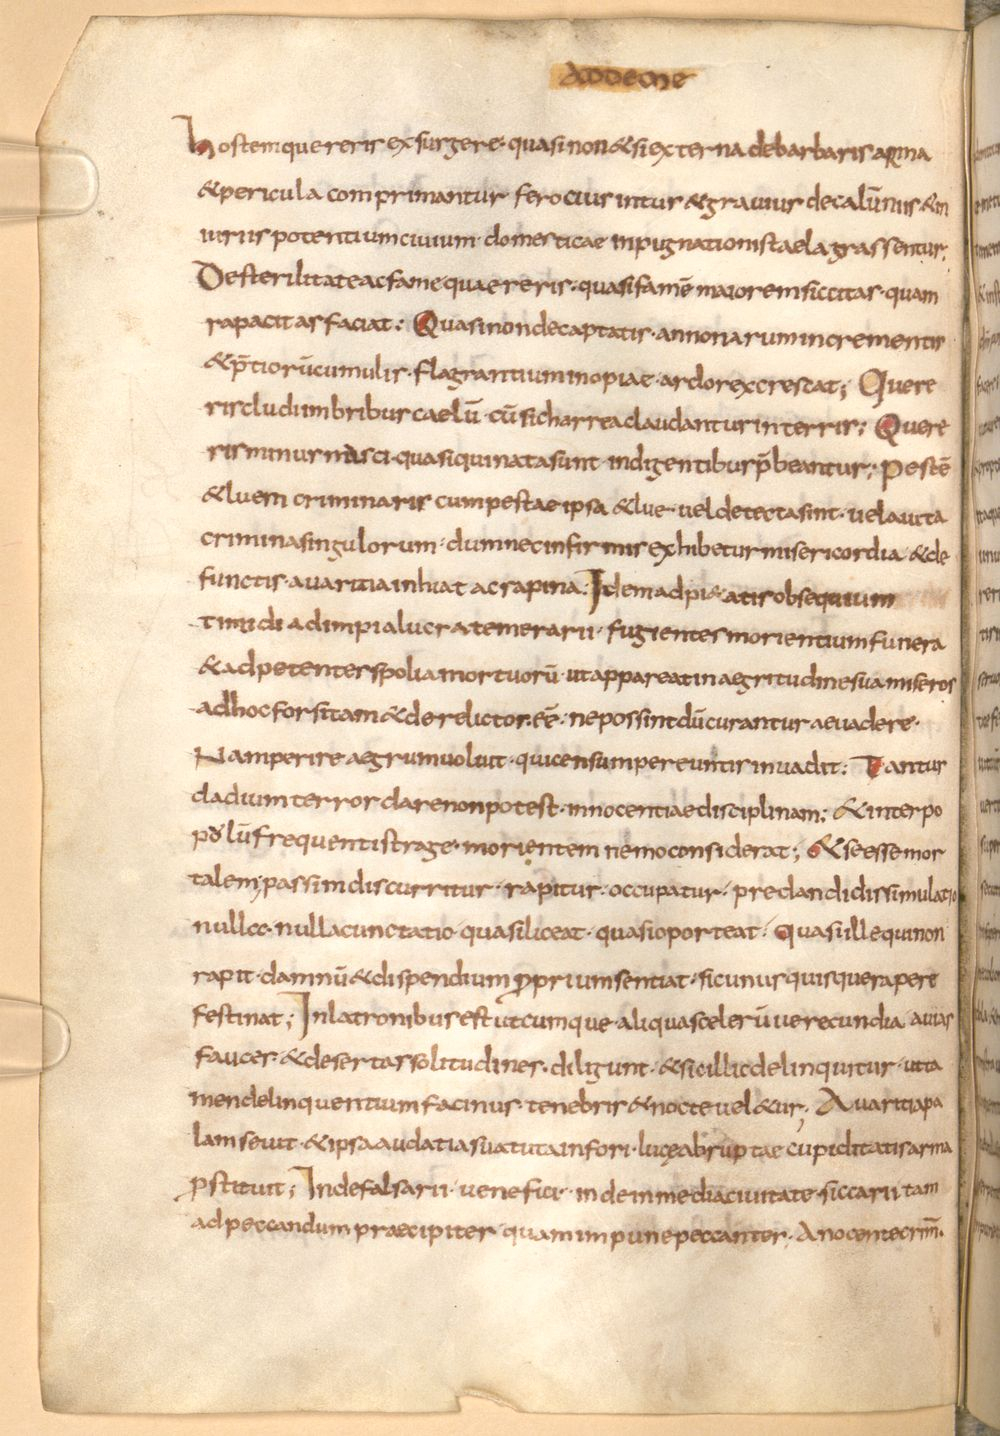 AD DEME
hostem quereris exsurgere· quasi non & si externa de barbaris arma
& pericula comprimantur ferocius intus & grauius de calūniis & in
iuriis potentium ciuium· domesticae inpugnationis taela grassentur;
De sterilitate ac fame quaereris· quasi famē maiorem siccitas· quam
rapacitas faciat: Quasi non de captatis· annonarum incrementis
& p̄tiorū cumulis· flagrantium inopiae· ardor excrescat; Quere
ris cludi imbribus caelū· cū sic harrea claudantur in terris; Quere
ris minus nasci· quasi qui nata sunt indigentibus p̄beantur; Pestē
& luem criminaris cum pestae ipsa & lue· uel detecta sint· uel aucta
crimina singulorum· dum nec infirmis exhibetur misericordia· & de
functis· auaritia inhiat ac rapina. Idem ad pi&atis obsequium
timidi ad impia lucra temerarii· fugientes morientium funera
& adpetentes spolia mortuorū· ut appareat in aegritudine sua miseros
ad hoc forsitam & derelictos· eē· ne possint dū curantur aeuadere·
Nam perire aegrum uoluit· qui censum pereuntis inuadit: Tantus
cladium terror dare non potest· innocentiae disciplinam; & inter po
pu lū frequenti strage· morientem nemo considerat; & se esse mor
talem; passim discurritur· rapitur· occupatur· preclandi dissimulatio
nulla· nulla cunctatio· quasi liceat· quasi oporteat· quasi ille qui non
rapit· damnū & dispendium ꝓprium sentiat· sic unusquisque rapere
festinat; In latronibus est utcumque aliqua scelerū uerecundia· auias
fauces· & desertas solitudines· diligunt· & sic illic delinquitur· ut ta
men delinquentium facinus· tenebris & nocte uel&ur; Auaritia pa
lam seuit· & ipsa audatia sua tuta in fori· luce abruptae cupiditatis arma
ꝓstituit; Inde falsarii· uenefici· inde in media ciuitate· siccarii tam
ad peccandum praecipites· quam impune peccantes· A nocente crim̄·